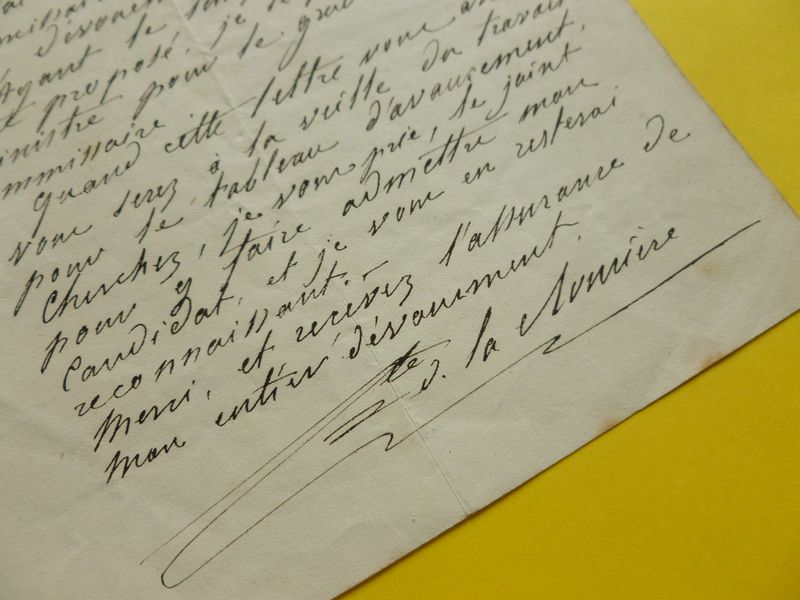 dévouement
ayant le
proposé, je le
ministre pour le grade
ommissaire.
Quand cette lettre vous
vous serez à la veille du travail
pour le tableau d'avancement,
Cherchez, je vous prie, le joint
pour y faire admettre mon
Candidat, et je vous en resterai
reconnaissant. —
Merci, et recevez l'assurance de
mon entier dévouement.